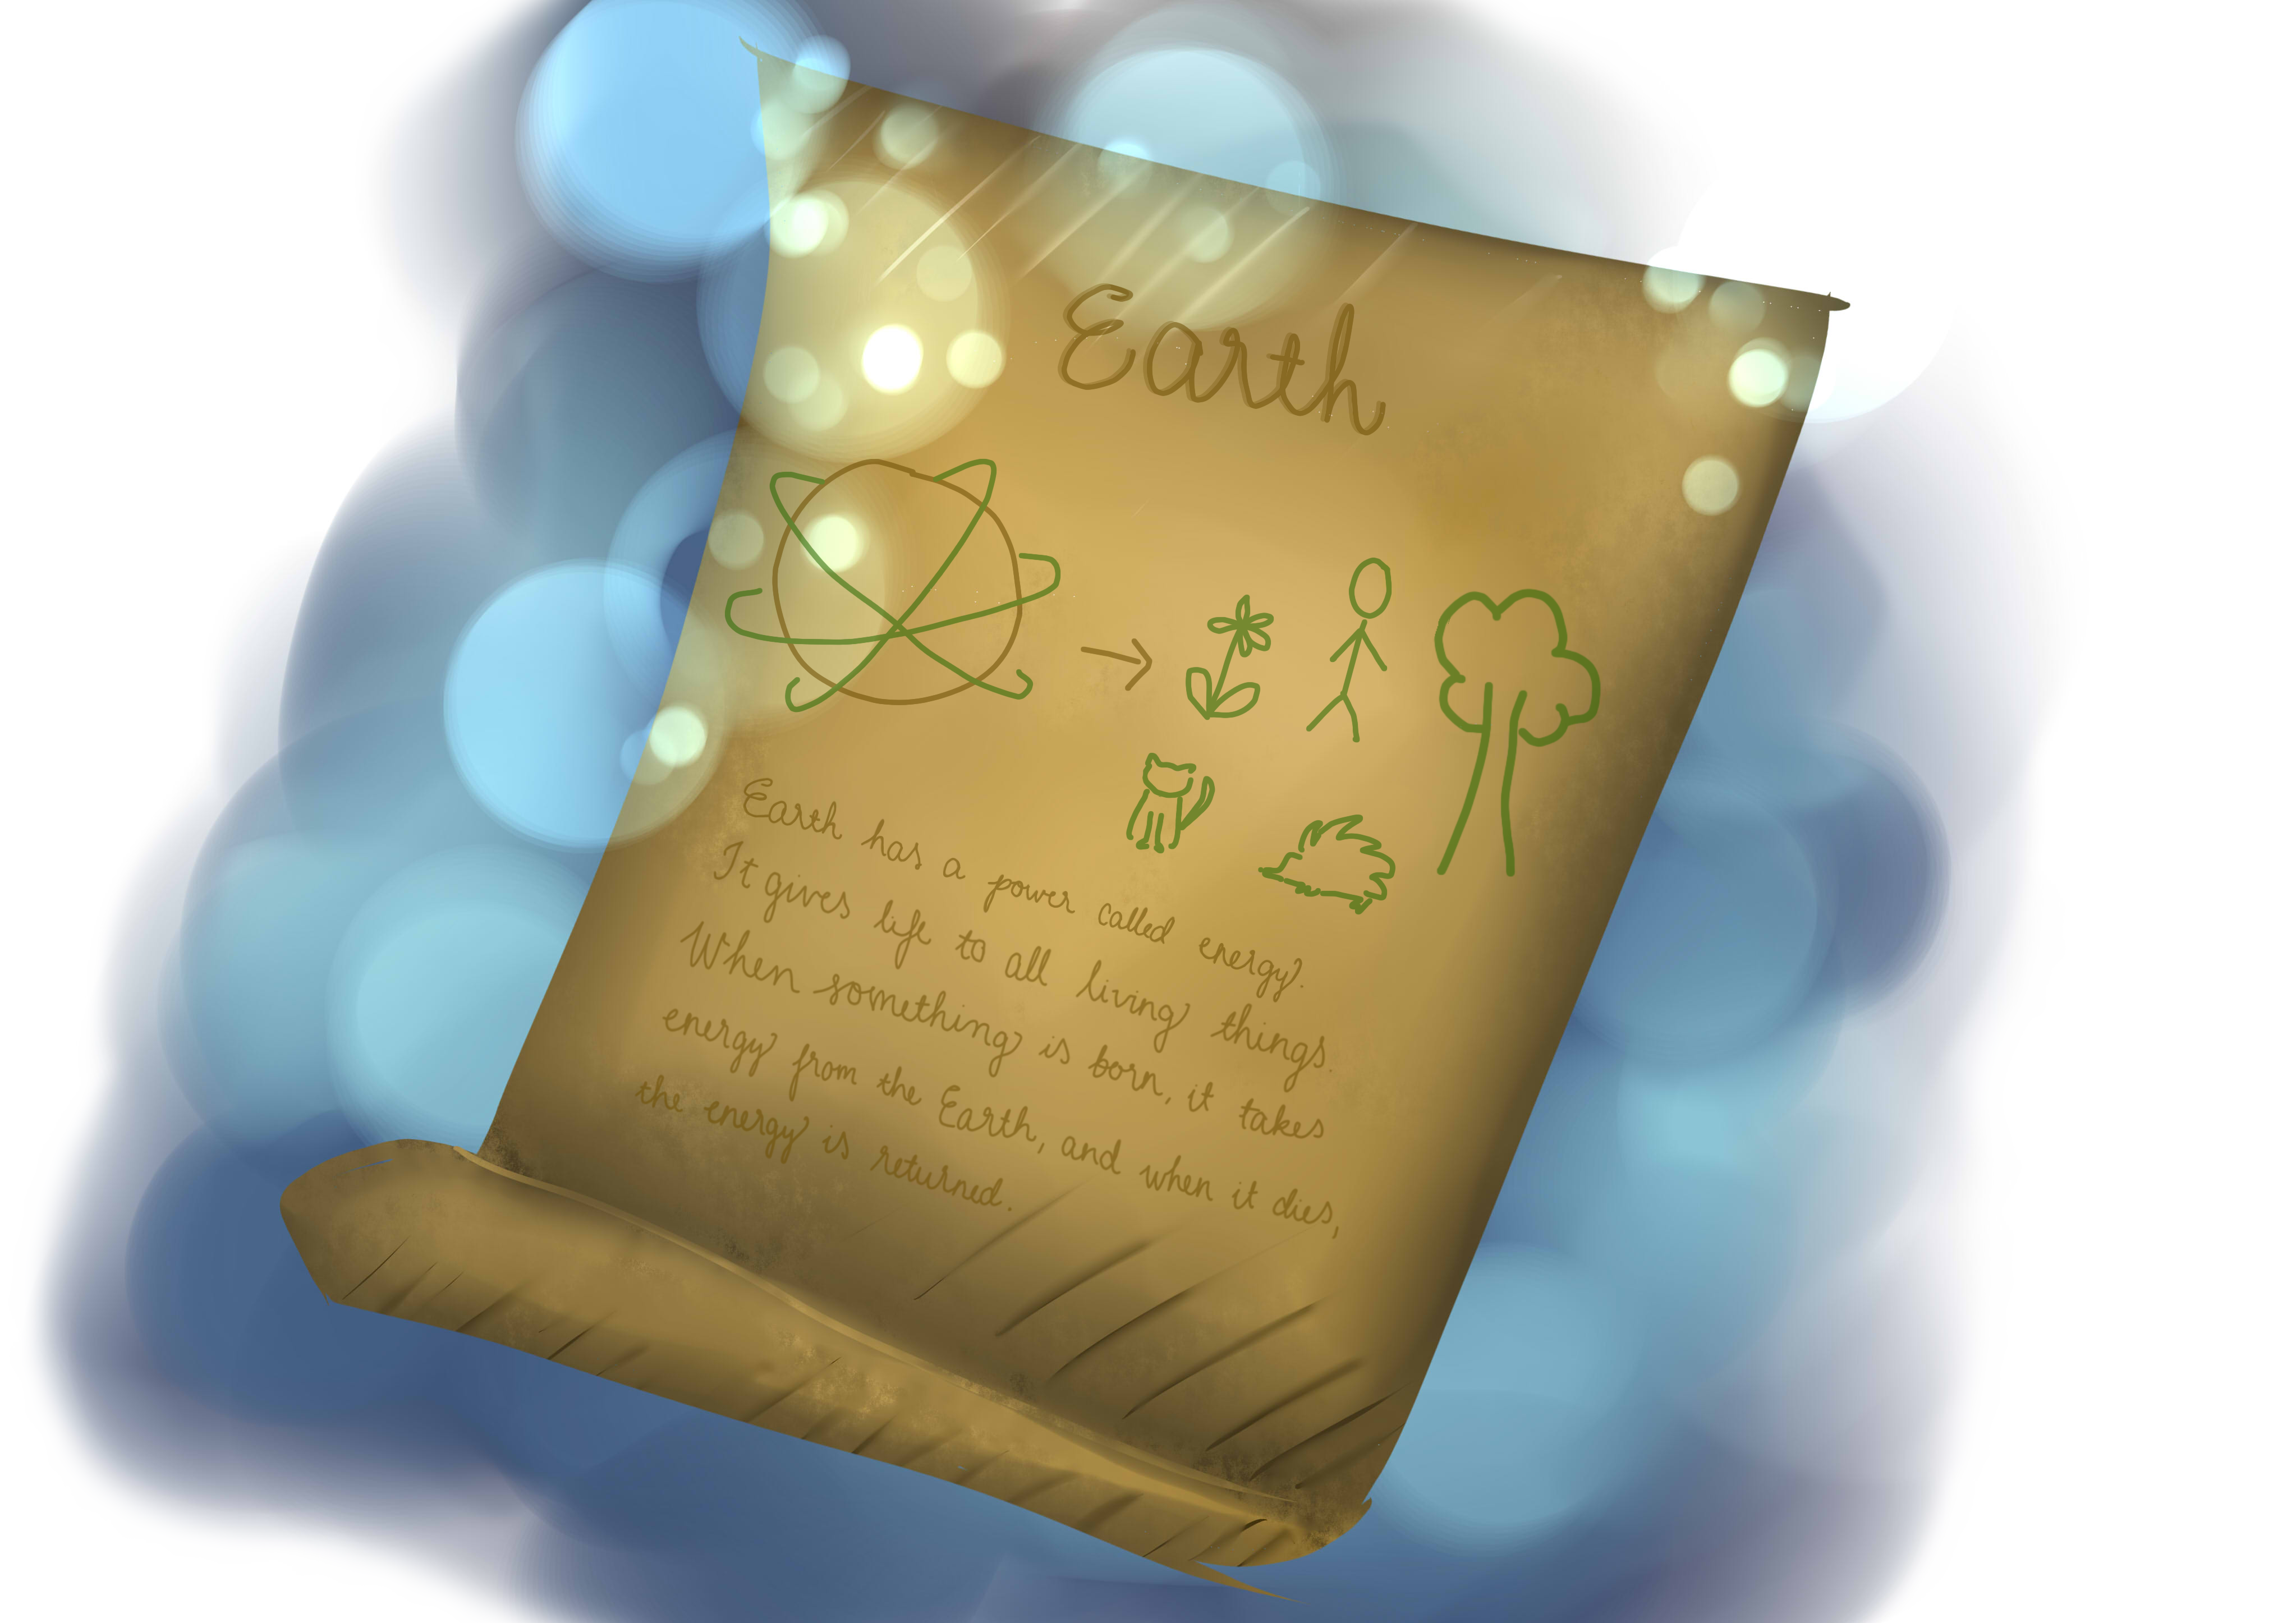 Earth
Earth has a power called energy.
It gives life to all living things.
When something is born, it takes
energy from the Earth, and when it dies,
the energy is returned.